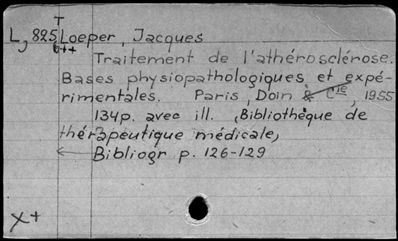 T
L, 825 Loeper, Jacques
b++
Traitement de l'athérosclérose.
Bases physiopathologiques et expé-
rimentales. Paris, Doin & Cie, 1955
134p. avec ill. (Bibliothèque de
thérapeutique médicale,
Bibliogr p. 126-129
X+